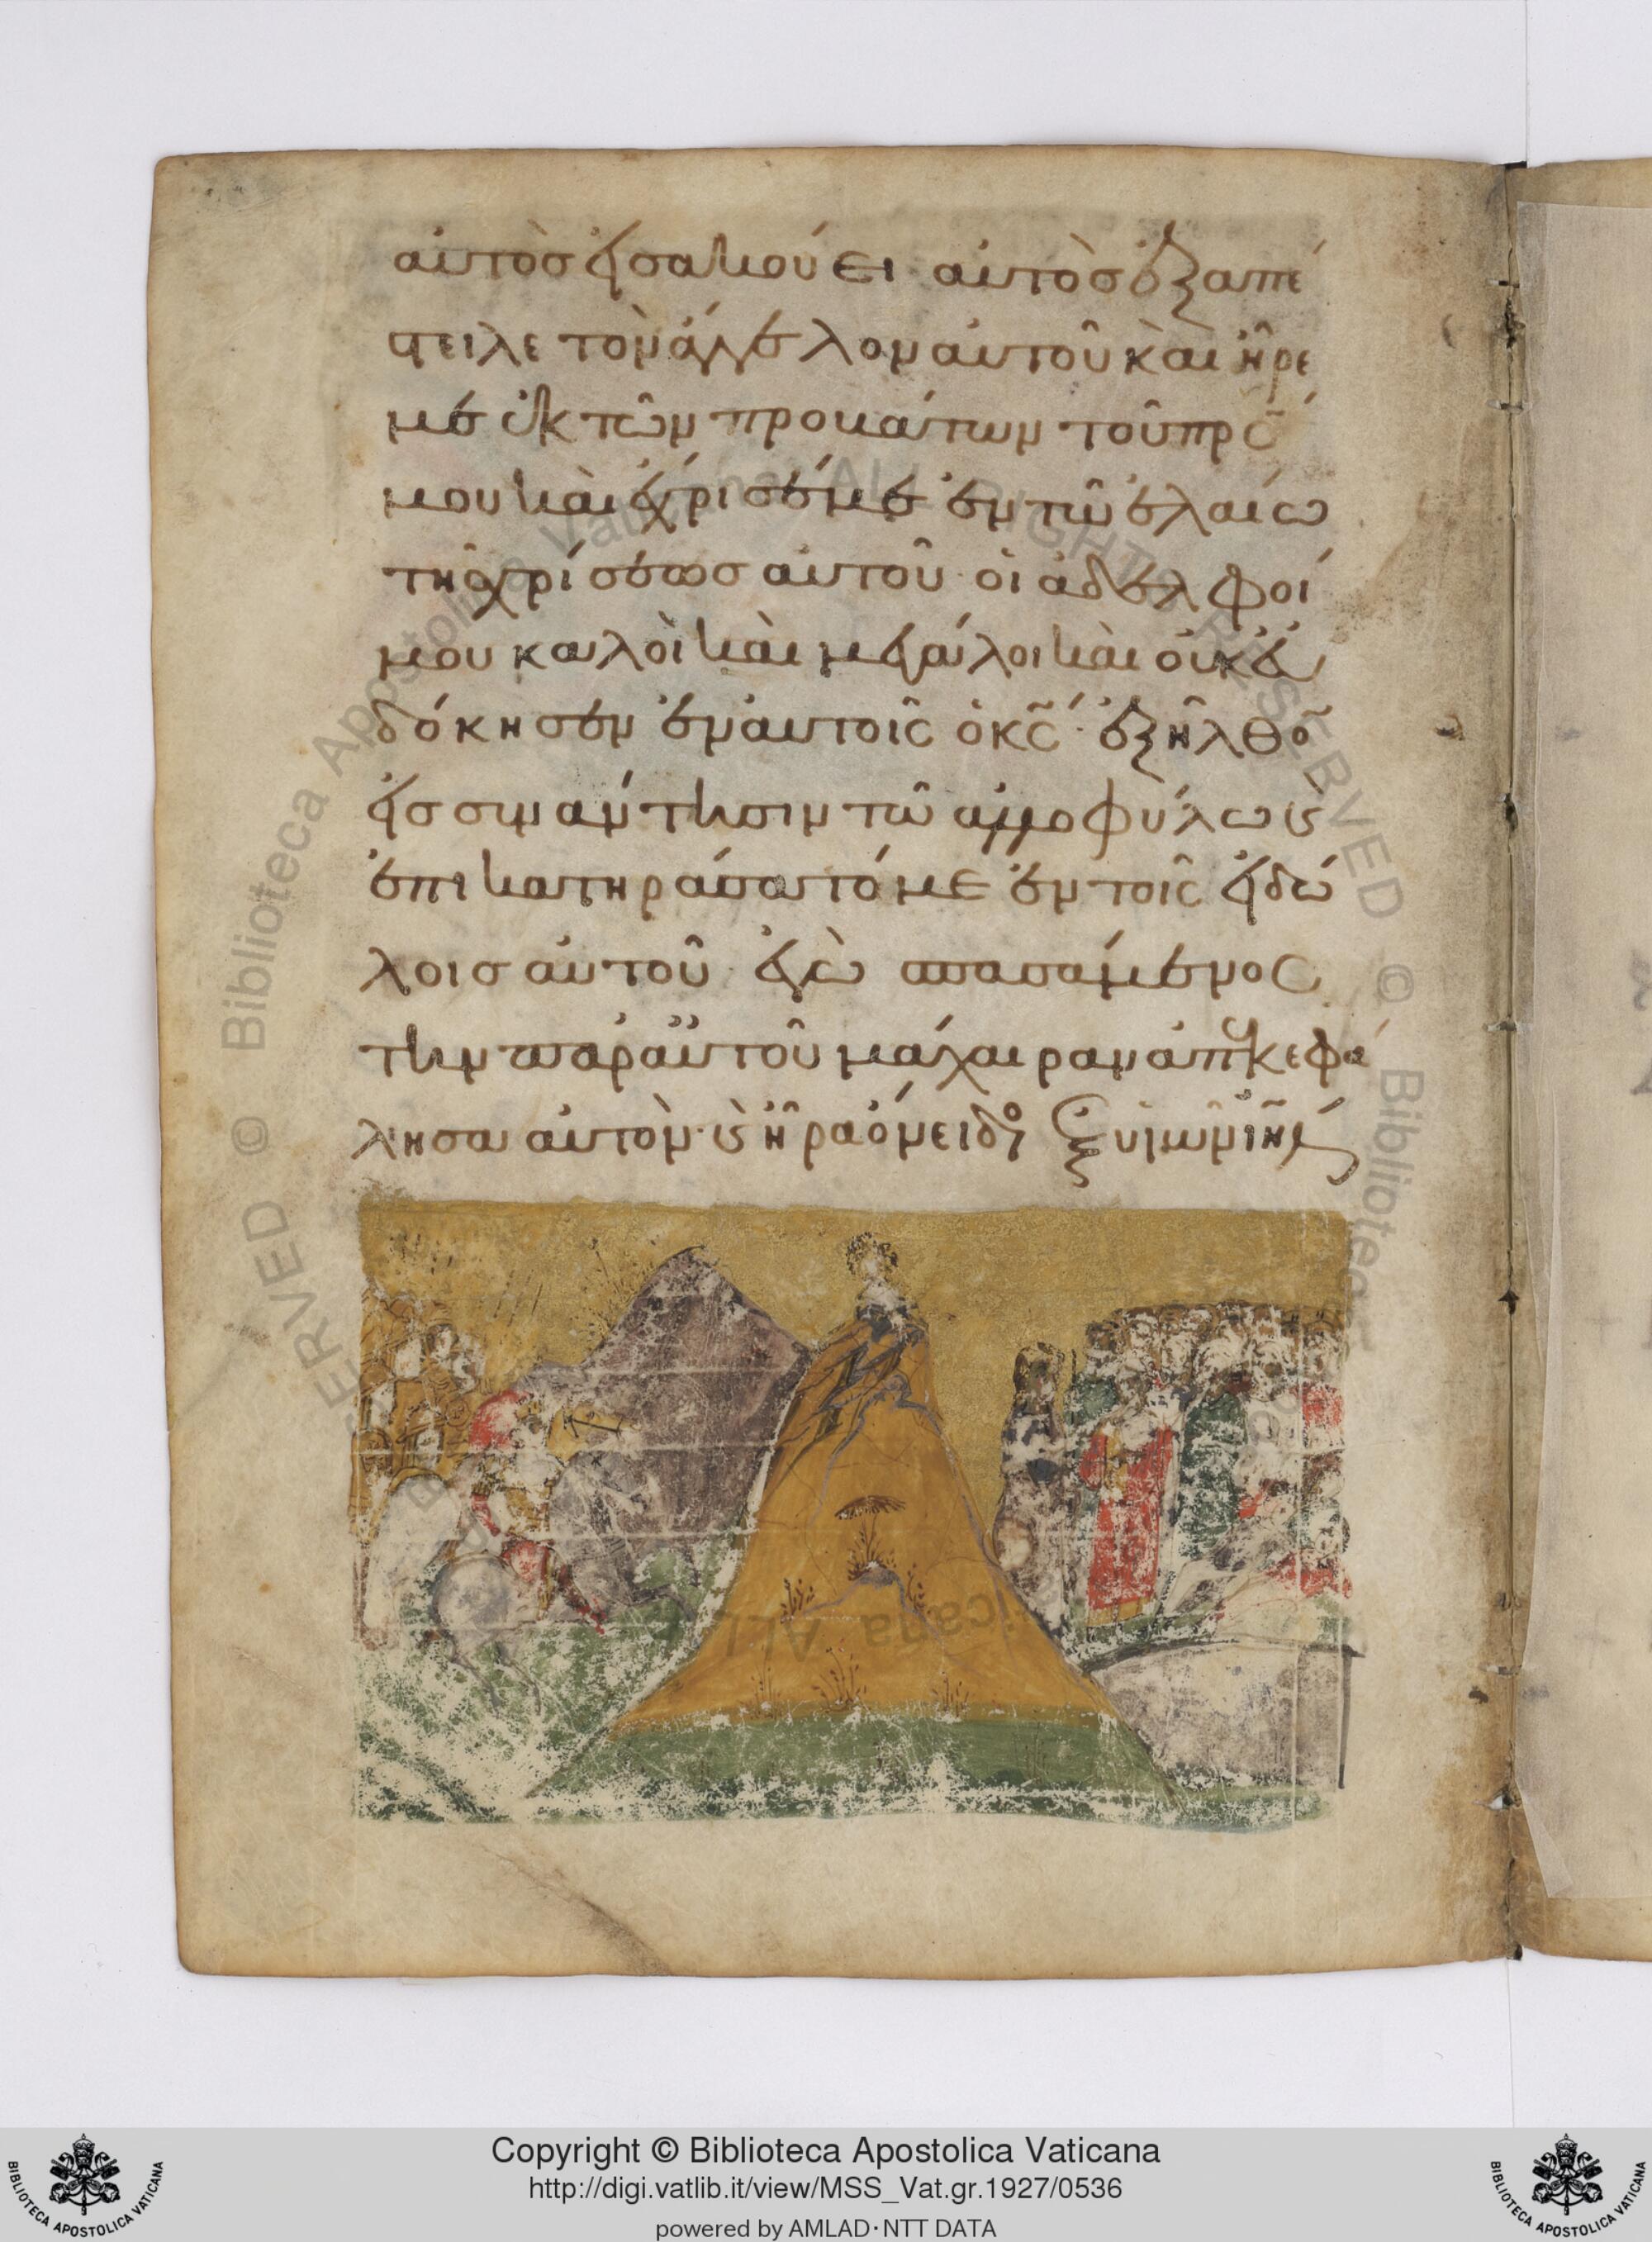 αὐτὸσ εἰσακούει αὐτὸσ ἐξαπέ
στειλε τὸν ἄγγελον αὐτοῦ κὰι ἦρε
με ἐκ τῶν προβάτων τοῦ πρσ
μου κὰι ἔχρισέ με ἐν τῶ ἐλαίω
τῆσ χρίσεωσ αὐτοῦ· οἱ ἀδελφοί
μου καλοὶ κὰι μεγάλοι κὰι οὐκ εὐ
δόκησεν ἐν αὐτοῖς ὁ κς· ἐξῆλθον
εἰσ συνάντησιν τῶ ἀλλοφύλω ϗ
ἐπικατηράσατό με ἐν τοῖς εἰδώ
λοισ αὐτοῦ· ἐγὼ σπασάμενος
τὴν παρ αὐτοῦ μάχαιραν ἀπεκεφά
λησα αὐτὸν· ϗ ἦρα ὄνειδος ἐξ υἱῶν ιηλ
Copyright © Biblioteca Apostolica Vaticana
http://digi.vatlib.it/view/MSS_Vat.gr.1927/0536
powered by AMLAD·NTT DATA
BIBLIOTECA APOSTOLICA VATICANA
BIBLIOTECA APOSTOLICA VATICANA